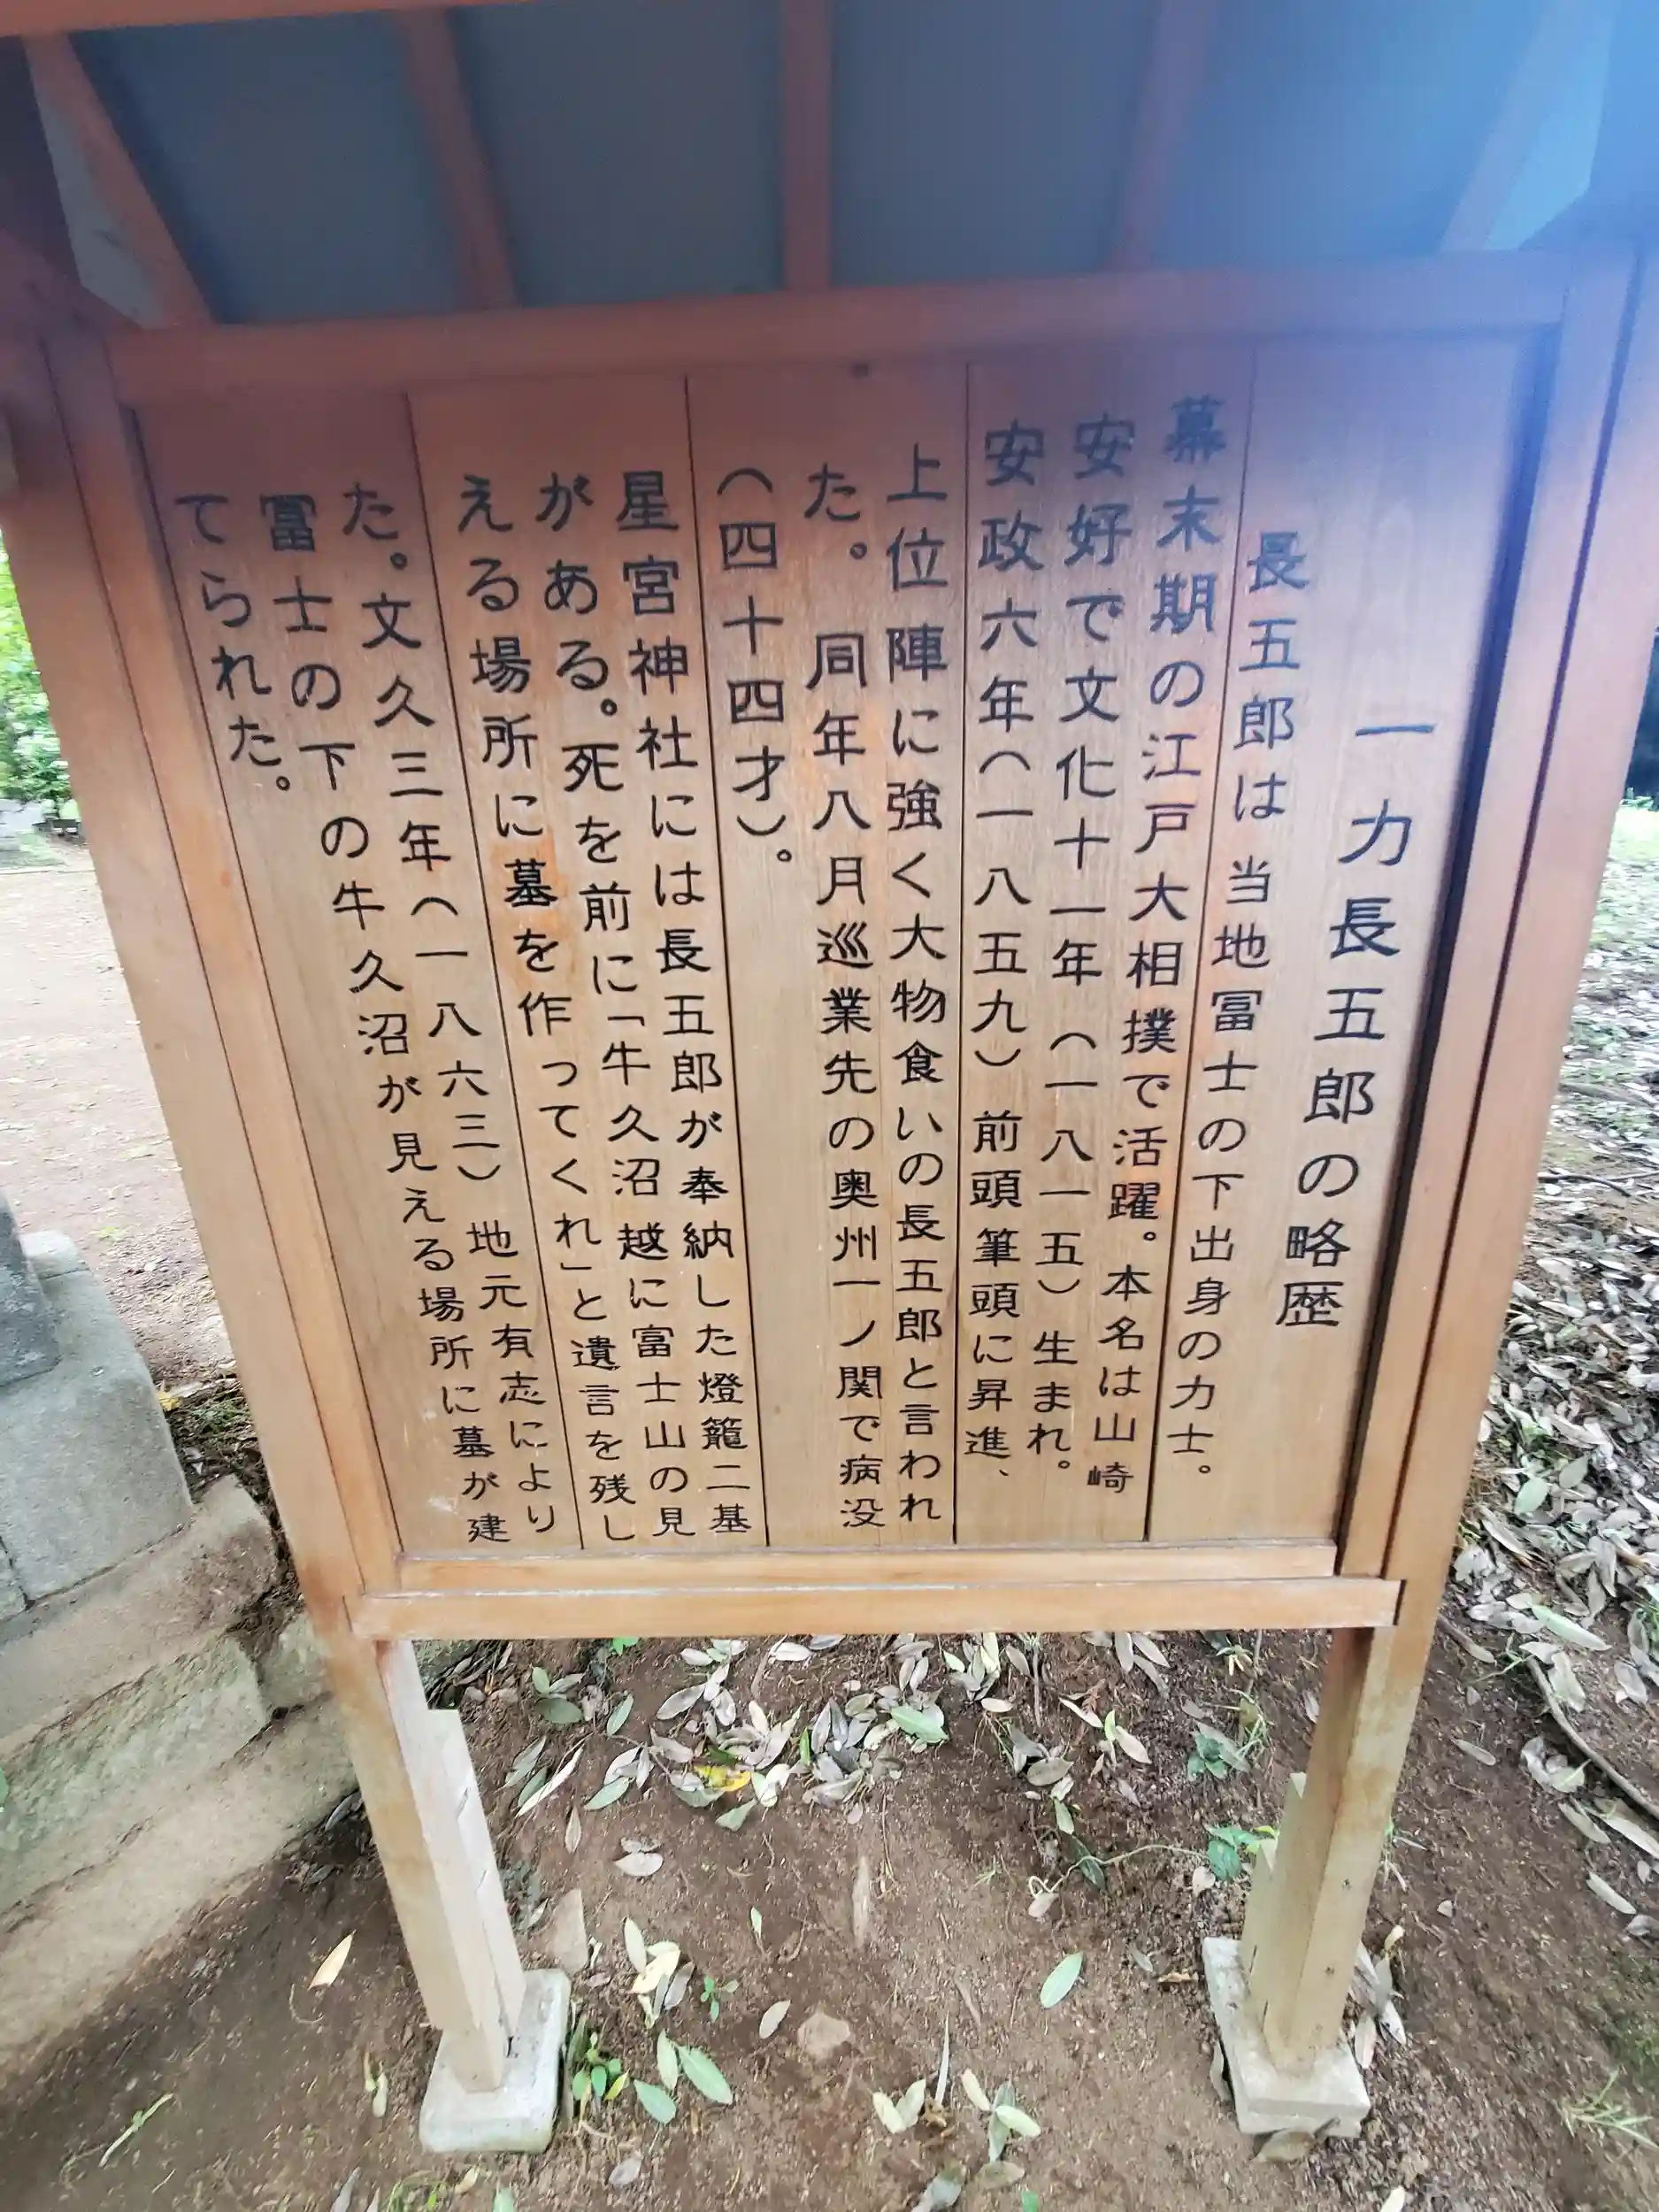 一力長五郎の略歴
長五郎は当地冨士の下出身の力士。
幕末期の江戸大相撲で活躍。本名は山崎
安好で文化十一年（一八一五）生まれ。
安政六年（一八五九）前頭筆頭に昇進、
上位陣に強く大物食いの長五郎と言われ
た。同年八月巡業先の奥州一ノ関で病没
（四十四才）。
星宮神社には長五郎が奉納した燈籠二基
がある。死を前に「牛久沼越に富士山の見
える場所に墓を作ってくれ」と遺言を残し
た。文久三年（一八六三）地元有志により
冨士の下の牛久沼が見える場所に墓が建
てられた。